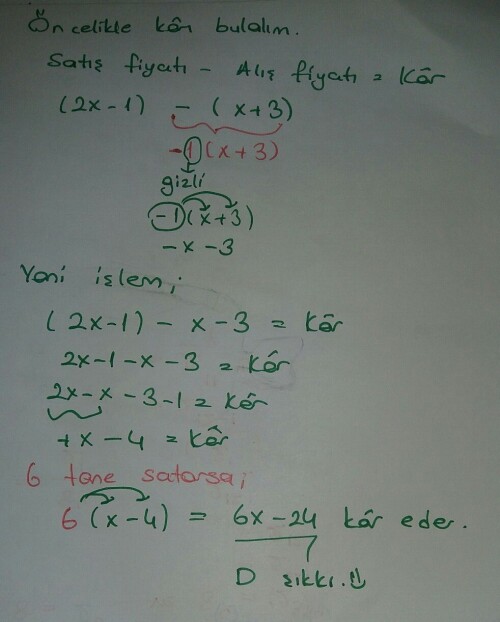 Öncelikle kâr bulalım.
Satış fiyatı - Alış fiyatı = Kâr
(2x-1) - (x+3)
-1(x+3)
gizli
-1(x+3)
-x-3
Yani işlem;
(2x-1) - x - 3 = kâr
2x-1-x-3 = kâr
2x-x-3-1 = kâr
+x-4 = kâr
6 tane satarsa;
6(x-4) = 6x-24 kâr eder.
D şıkkı.